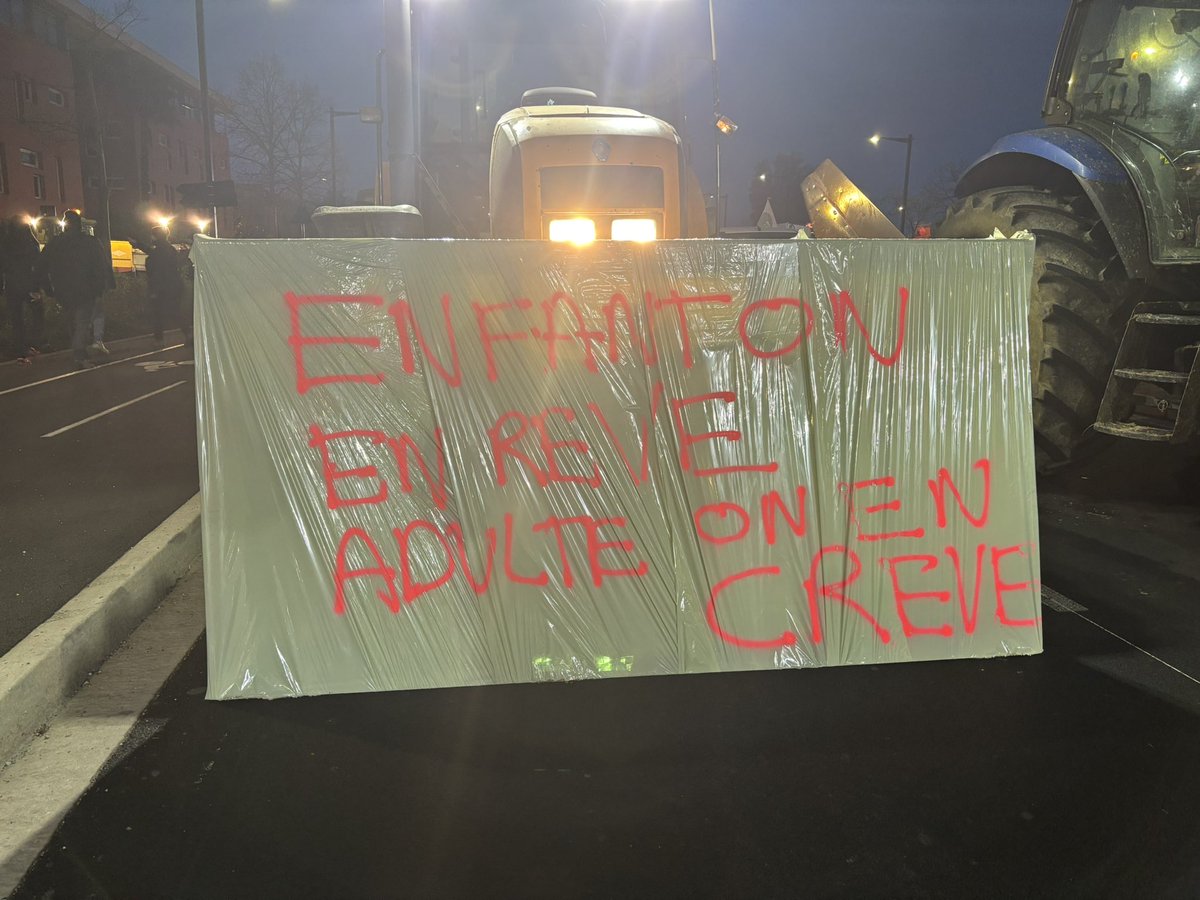 ENFANT ON
EN REVE
ADULTE ON EN
CREVE